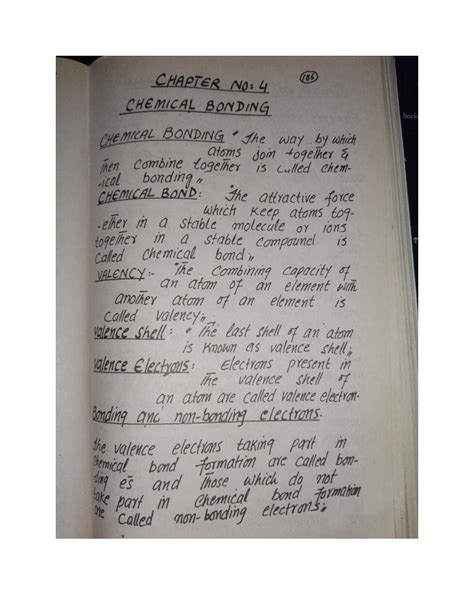 186
CHAPTER NO: 4
CHEMICAL BONDING
CHEMICAL BONDING " The way by which
atoms join together &
then combine together is called chem-
-ical bonding "
CHEMICAL BOND: "The attractive force
which keep atoms tog-
-ether in a stable molecule or ions
together in a stable compound is
called chemical bond "
VALENCY:- "The combining capacity of
an atom of an element with
another atom of an element is
called valency "
Valence shell: " The last shell of an atom
is known as valence shell "
Valence Electrons: Electrons present in
the valence shell of
an atom are called valence electron.
Bonding and non-bonding electrons.
The valence electrons taking part in
chemical bond formation are called bon-
-ding es and those which do not
take part in chemical bond formation
are called non-bonding electrons "